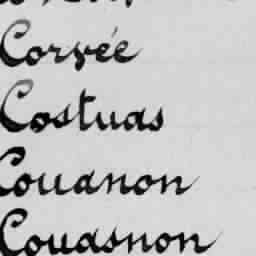 Corvée
Costuas
Couanon
Couasnon